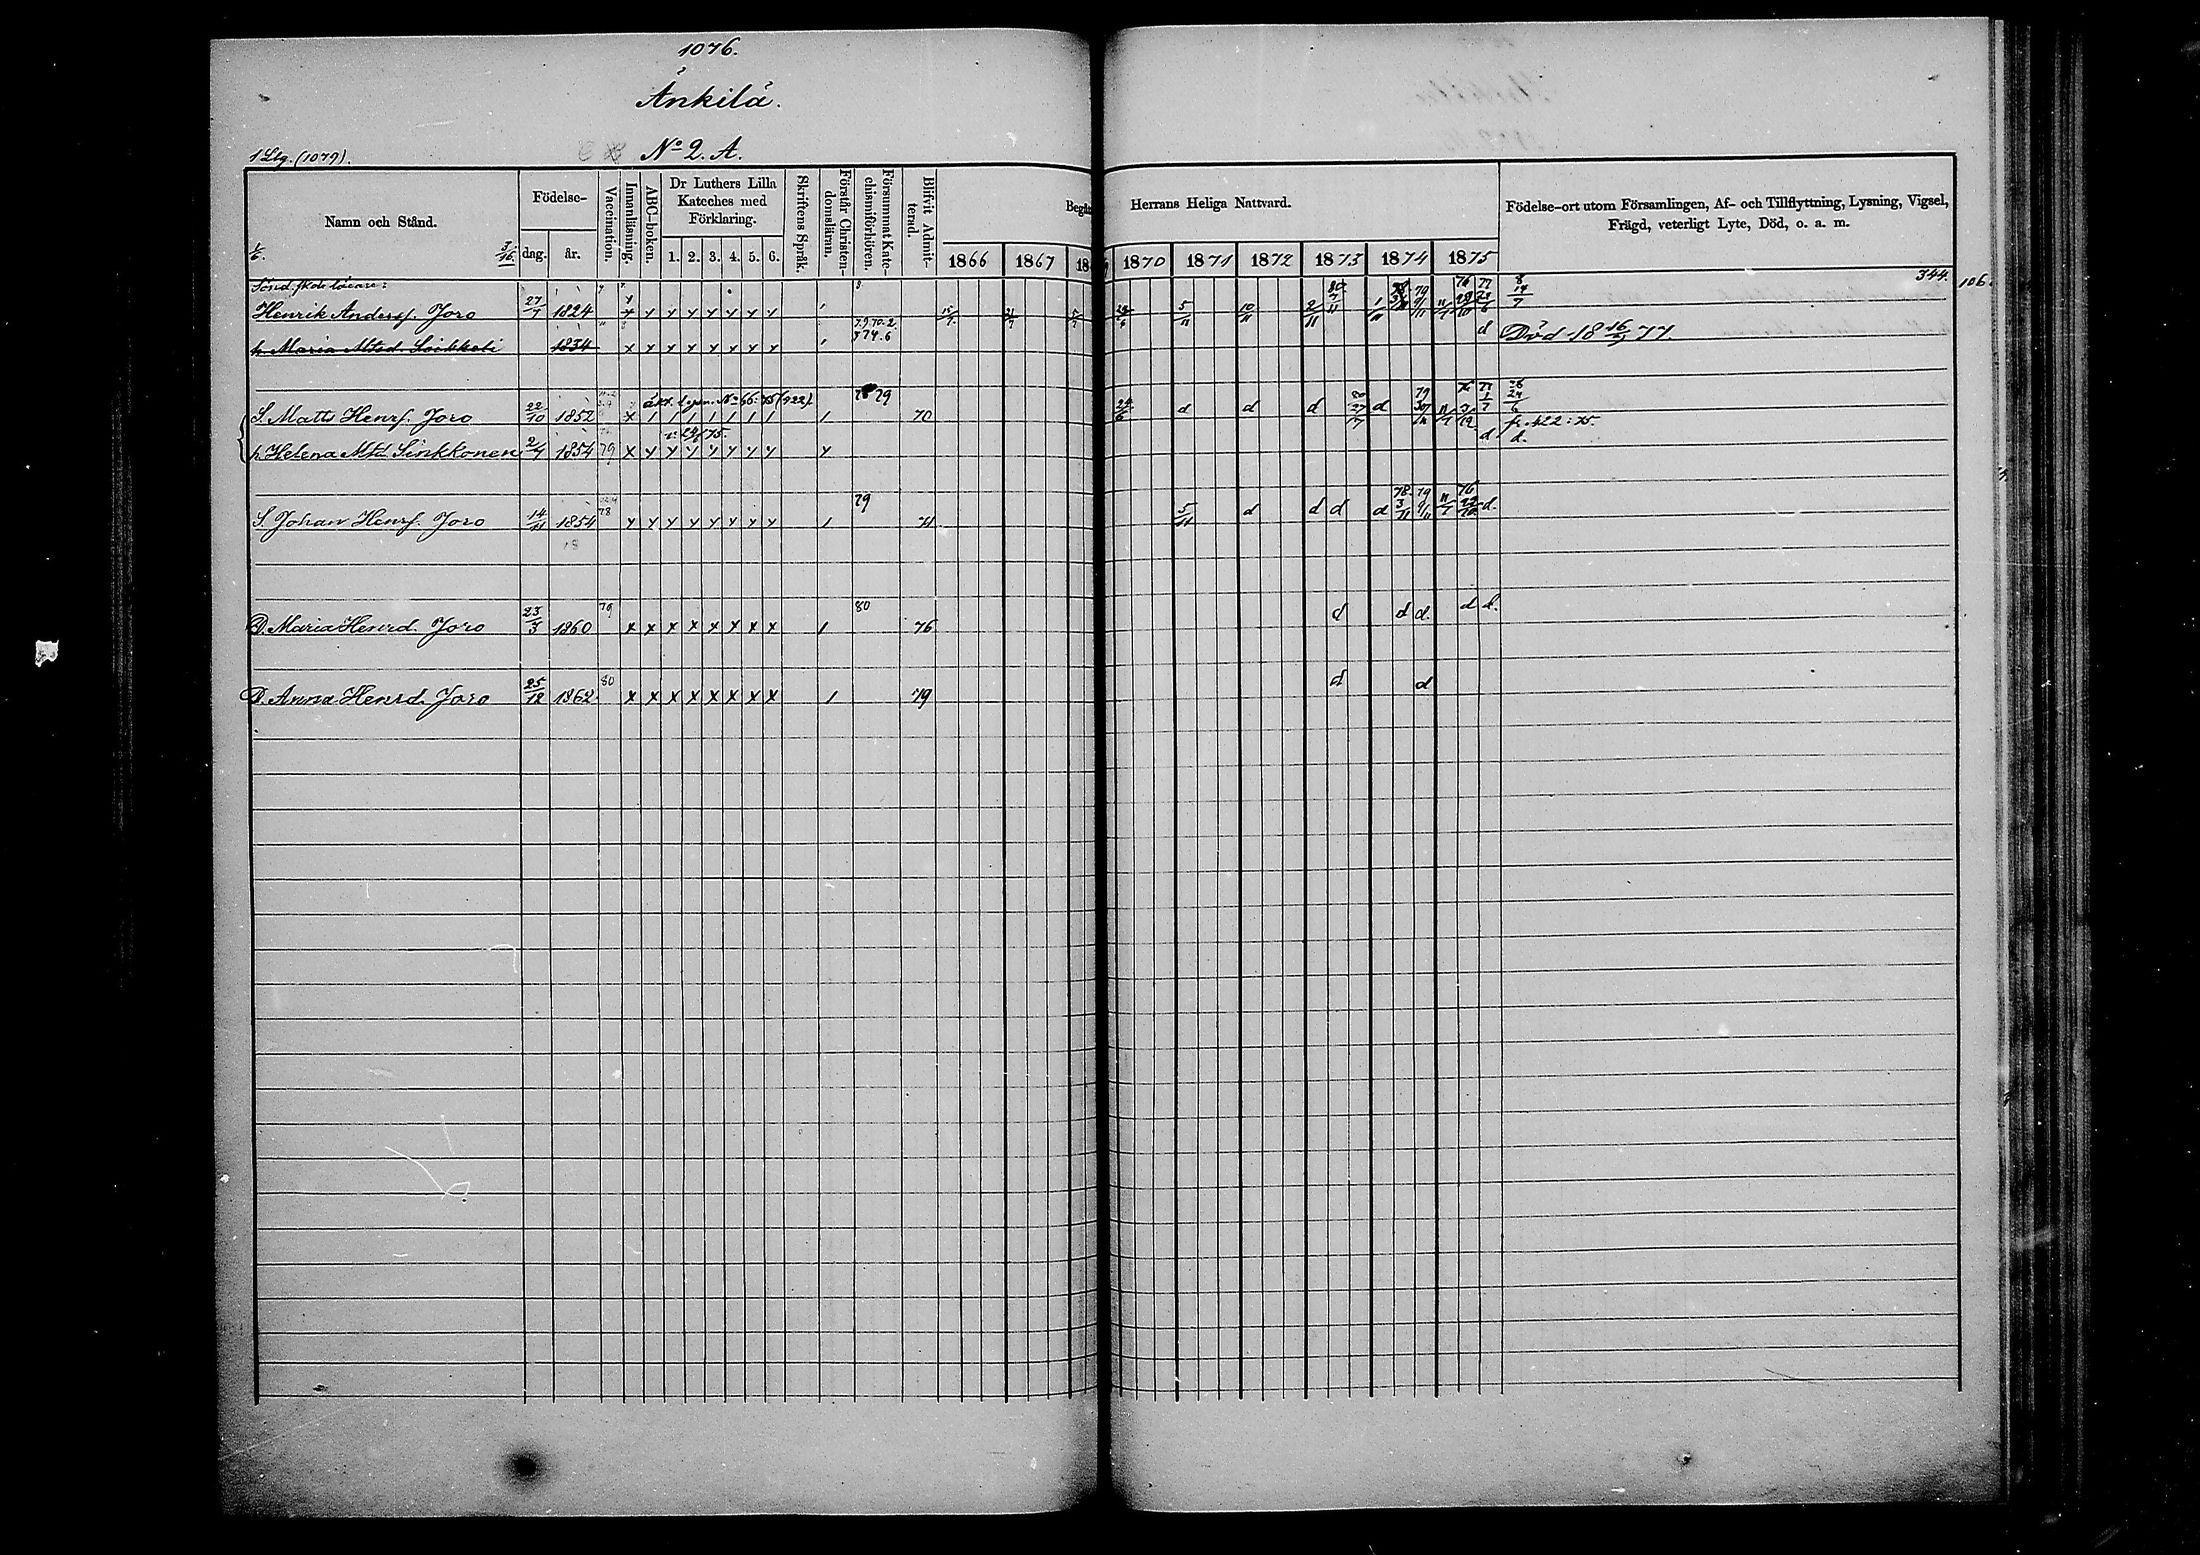 1076.
Änkilä.
1 Llg. (1079). No 2. A.
Namn och Stånd.
Födelse-
dag. år.
Vaccination.
Innanläsning.
ABC-boken.
Dr Luthers Lilla Kateches med Förklaring.
1. 2. 3. 4. 5. 6.
Skriftens Språk.
Förstår Christendomsläran.
Försummat Katechismiförhören.
Blifvit Admitterad.
Begån Herrans Heliga Nattvard.
1866 1867 18 1870 1871 1872 1873 1874 1875
Födelse-ort utom Församlingen, Af- och Tillflyttning, Lysning, Vigsel,
Frägd, veterligt Lyte, Död, o. a. m.
344. 106.
Henrik Andersf. Joro 27/7 1824 x y y y y y y y
h. Maria Mtsd. Loikkeli 1834 x y y y y y y y d Död 18 16/5 77.
äkt. l. gen. No 66: 75 (922).
S. Matts Henrf. Joro 22/10 1852 x 1 1 1 1 1 1 1 1 79 70 24/6 d d d d fr. 422: 75.
v. 24/6 75.
h. Helena Mtd. Sinkkonen 2/4 1854 79 x y y y y y y y y d d.
S. Johan Henrf. Joro 14/11 1854 78 y y y y y y y y 1 79 71 5/11 d d d d d.
D. Maria Henrd. Joro 23/3 1860 79 x x x x x x x x 1 80 76 d d d. d d.
D. Anna Henrd. Joro 25/12 1862 80 x x x x x x x x 1 79 d d